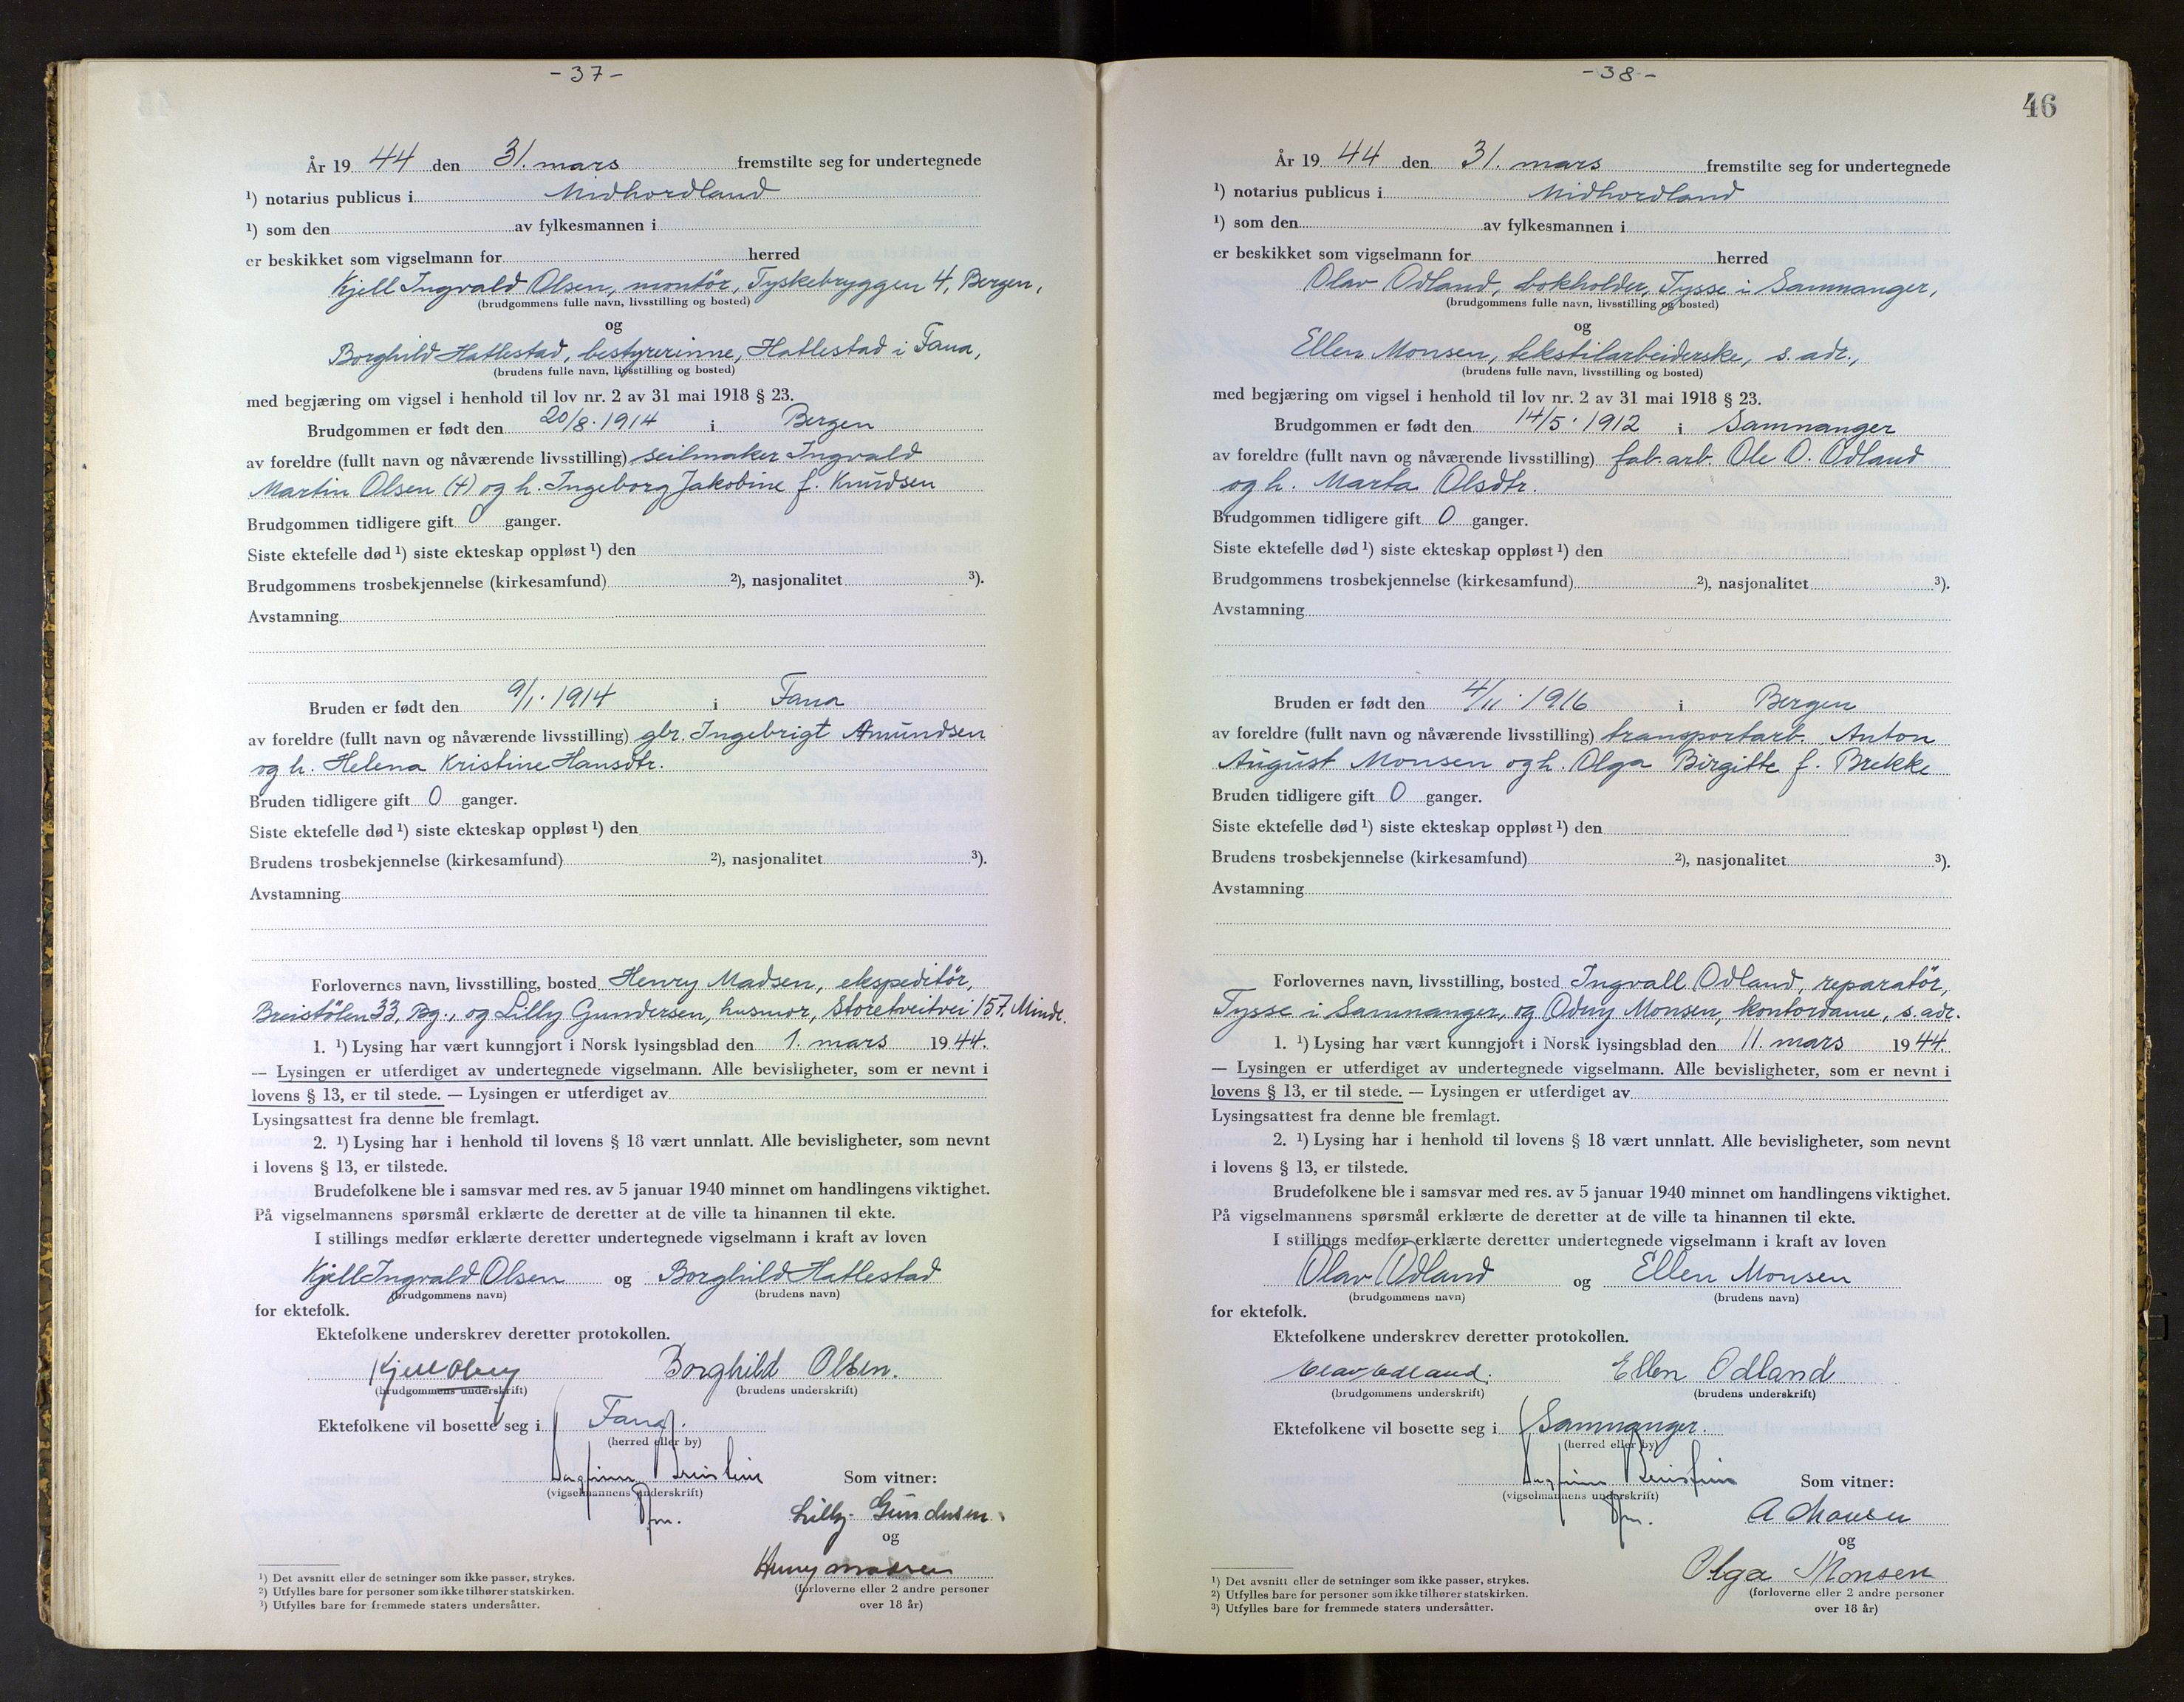 - 37 -
År 19 44 den 31. mars fremstilte seg for undertegnede
¹) notarius publicus i Midhordland
¹) som den av fylkesmannen i
er beskikket som vigselmann for herred
Kjell Ingvald Olsen, montör, Tyskebryggen 4, Bergen,
(brudgommens fulle navn, livsstilling og bosted)
og
Borghild Hatlestad, bestyrerinne, Hatlestad i Fana,
(brudens fulle navn, livsstilling og bosted)
med begjæring om vigsel i henhold til lov nr. 2 av 31 mai 1918 § 23.
Brudgommen er født den 20/8. 1914 i Bergen
av foreldre (fullt navn og nåværende livsstilling) seilmaker Ingvald
Martin Olsen (+) og h. Ingeborg Jakobine f. Knudsen
Brudgommen tidligere gift 0 ganger.
Siste ektefelle død ¹) siste ekteskap oppløst ¹) den
Brudgommens trosbekjennelse (kirkesamfund) ²), nasjonalitet ³).
Avstamning
Bruden er født den 9/1. 1914 i Fana
av foreldre (fullt navn og nåværende livsstilling) gbr. Ingebrigt Amundsen
og h. Helena Kristine Hansdtr.
Bruden tidligere gift 0 ganger.
Siste ektefelle død ¹) siste ekteskap oppløst ¹) den
Brudens trosbekjennelse (kirkesamfund) ²), nasjonalitet ³).
Avstamning
Forlovernes navn, livsstilling, bosted Henry Madsen, ekspeditör,
Breistölen 33, Bg., og Lilly Gundersen, husmor, Storetveitvei 157, Minde.
1. ¹) Lysing har vært kunngjort i Norsk lysingsblad den 1. mars 19 44.
— Lysingen er utferdiget av undertegnede vigselmann. Alle bevisligheter, som er nevnt i
lovens § 13, er til stede. — Lysingen er utferdiget av
Lysingsattest fra denne ble fremlagt.
2. ¹) Lysing har i henhold til lovens § 18 vært unnlatt. Alle bevisligheter, som nevnt
i lovens § 13, er tilstede.
Brudefolkene ble i samsvar med res. av 5 januar 1940 minnet om handlingens viktighet.
På vigselmannens spørsmål erklærte de deretter at de ville ta hinannen til ekte.
I stillings medfør erklærte deretter undertegnede vigselmann i kraft av loven
Kjell Ingvald Olsen og Borghild Hatlestad
(brudgommens navn) (brudens navn)
for ektefolk.
Ektefolkene underskrev deretter protokollen.
Kjell Olsen Borghild Olsen.
(brudgommens underskrift) (brudens underskrift)
Ektefolkene vil bosette seg i Fana.
(herred eller by)
Som vitner:
(vigselmannens underskrift)
Lilly Gundersen.
og
Henry Madsen
(forloverne eller 2 andre personer
over 18 år)
¹) Det avsnitt eller de setninger som ikke passer, strykes.
²) Utfylles bare for personer som ikke tilhører statskirken.
³) Utfylles bare for fremmede staters undersåtter.
- 38 -
46
År 19 44 den 31. mars fremstilte seg for undertegnede
¹) notarius publicus i Midhordland
¹) som den av fylkesmannen i
er beskikket som vigselmann for herred
Olav Odland, bokholder, Tysse i Samnanger,
(brudgommens fulle navn, livsstilling og bosted)
og
Ellen Monsen, tekstilarbeiderske, s. adr.,
(brudens fulle navn, livsstilling og bosted)
med begjæring om vigsel i henhold til lov nr. 2 av 31 mai 1918 § 23.
Brudgommen er født den 14/5. 1912 i Samnanger
av foreldre (fullt navn og nåværende livsstilling) fab. arb. Ole O. Odland
og h. Marta Olsdtr.
Brudgommen tidligere gift 0 ganger.
Siste ektefelle død ¹) siste ekteskap oppløst ¹) den
Brudgommens trosbekjennelse (kirkesamfund) ²), nasjonalitet ³).
Avstamning
Bruden er født den 4/11. 1916 i Bergen
av foreldre (fullt navn og nåværende livsstilling) transportarb. Anton
August Monsen og h. Olga Birgitte f. Brekke
Bruden tidligere gift 0 ganger.
Siste ektefelle død ¹) siste ekteskap oppløst ¹) den
Brudens trosbekjennelse (kirkesamfund) ²), nasjonalitet ³).
Avstamning
Forlovernes navn, livsstilling, bosted Ingvall Odland, reparatör,
Tysse i Samnanger, og Odny Monsen, kontordame, s. adr.
1. ¹) Lysing har vært kunngjort i Norsk lysingsblad den 11. mars 19 44.
— Lysingen er utferdiget av undertegnede vigselmann. Alle bevisligheter, som er nevnt i
lovens § 13, er til stede. — Lysingen er utferdiget av
Lysingsattest fra denne ble fremlagt.
2. ¹) Lysing har i henhold til lovens § 18 vært unnlatt. Alle bevisligheter, som nevnt
i lovens § 13, er tilstede.
Brudefolkene ble i samsvar med res. av 5 januar 1940 minnet om handlingens viktighet.
På vigselmannens spørsmål erklærte de deretter at de ville ta hinannen til ekte.
I stillings medfør erklærte deretter undertegnede vigselmann i kraft av loven
Olav Odland og Ellen Monsen
(brudgommens navn) (brudens navn)
for ektefolk.
Ektefolkene underskrev deretter protokollen.
Olav Odland. Ellen Odland
(brudgommens underskrift) (brudens underskrift)
Ektefolkene vil bosette seg i Samnanger.
(herred eller by)
Som vitner:
(vigselmannens underskrift)
A Monsen
og
Olga Monsen
(forloverne eller 2 andre personer
over 18 år)
¹) Det avsnitt eller de setninger som ikke passer, strykes.
²) Utfylles bare for personer som ikke tilhører statskirken.
³) Utfylles bare for fremmede staters undersåtter.